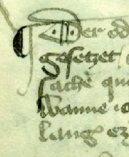 Der od
gesetzet
sache qu
wanne ic
lang ez